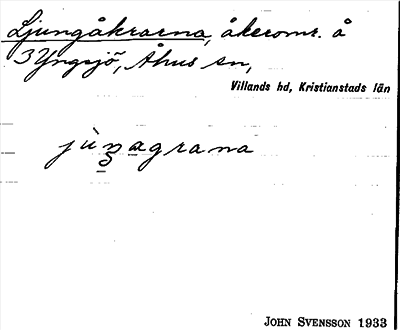 Ljungåkrarna, åkeromr. å
3 Yngsjö, Åhus sn,
Villands hd, Kristianstads län
jùŋagrana
JOHN SVENSSON 1933